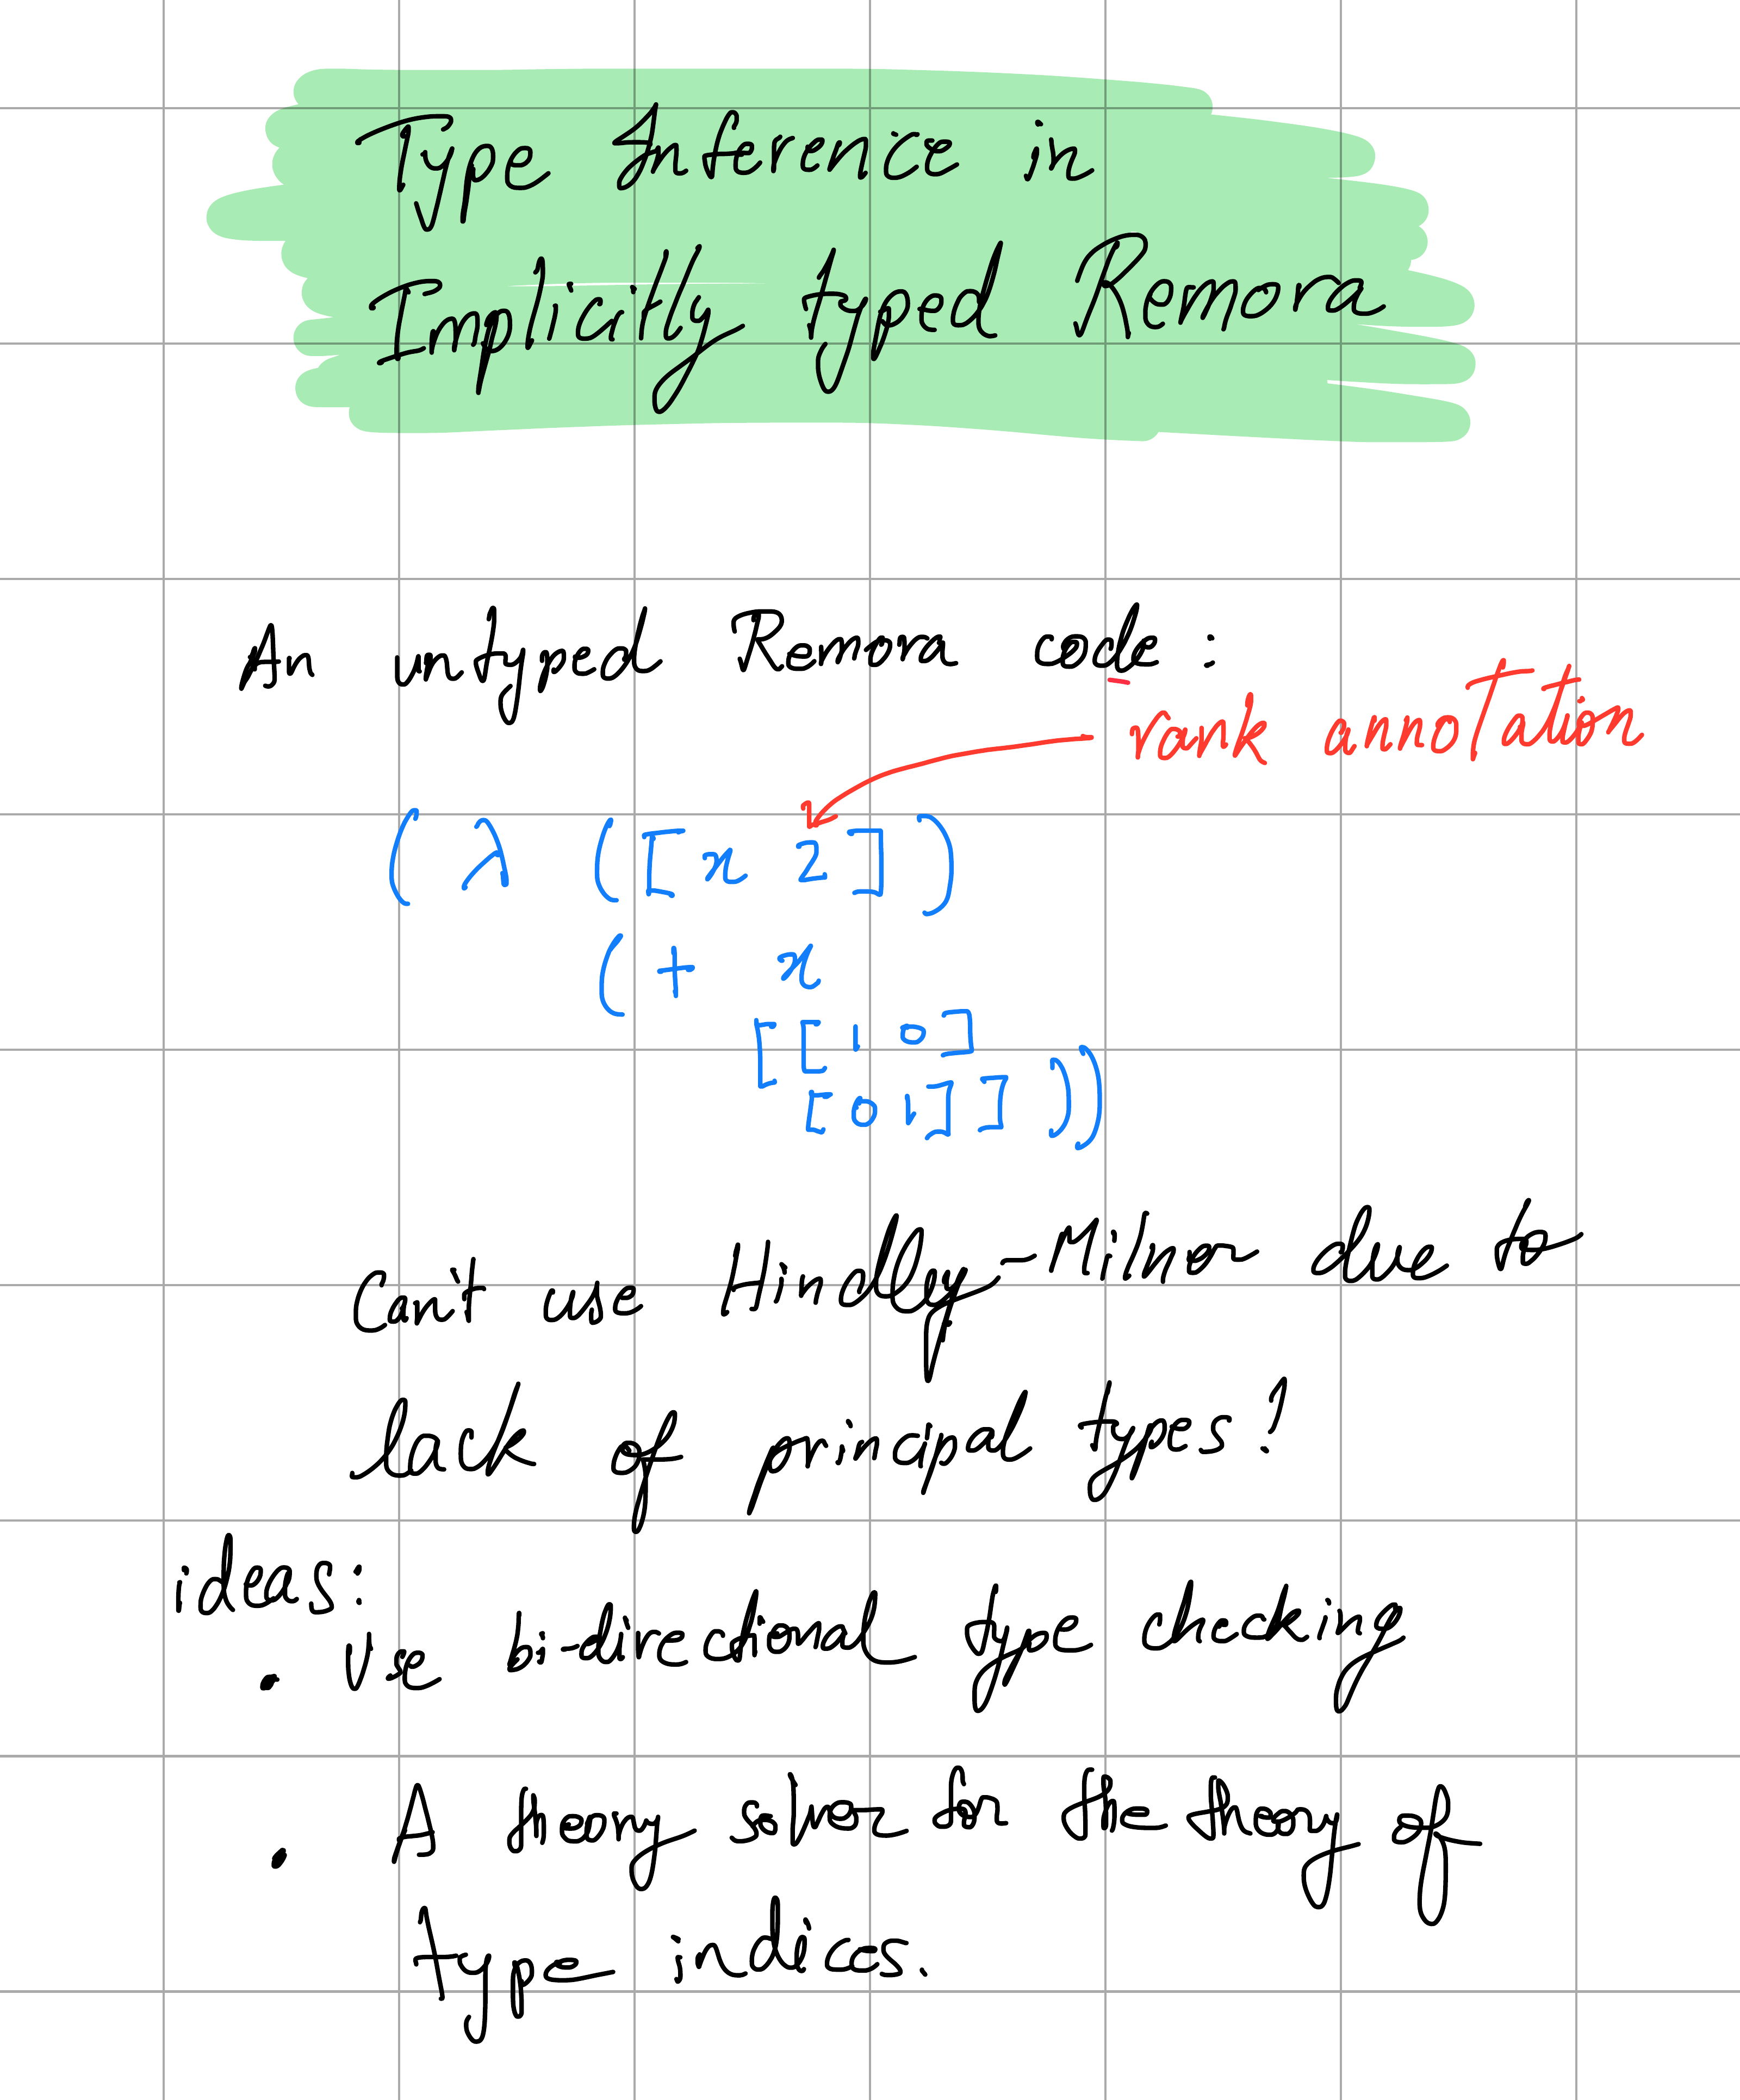 Type Inference in
Implicitly typed Remora
An untyped Remora code :
rank annotation
( λ ([ x 2 ])
( + x
[ [ 1 0 ]
[ 0 1 ] ] ))
Can't use Hindley-Milner due to
lack of principal types?
ideas:
• Use bi-directional type checking
• A theory solver for the theory of
type indices.